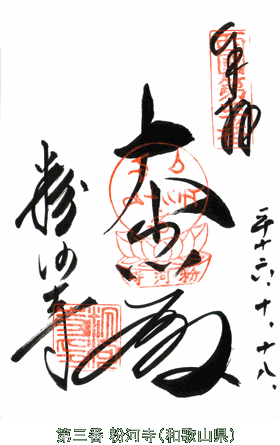 奉拝
西国第三番
平十六、十、十八、
大悲殿
粉河寺
粉河寺
第三番 粉河寺(和歌山県)